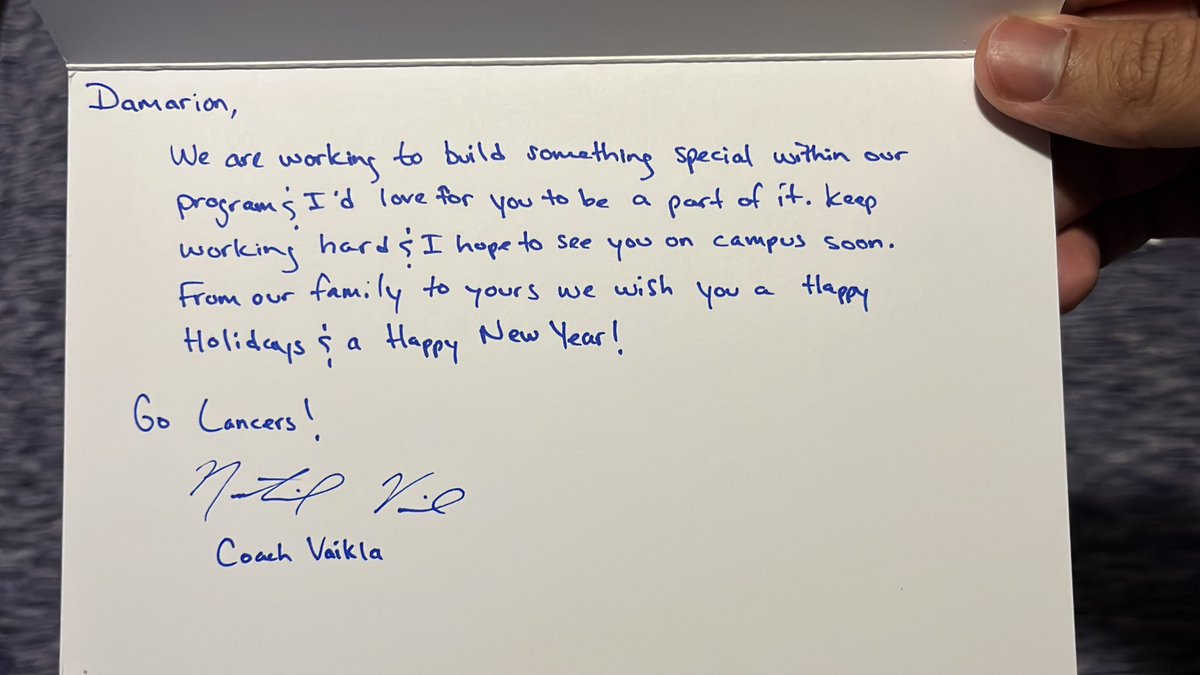 Damarion,
We are working to build something special within our
program & I'd love for you to be a part of it. Keep
working hard & I hope to see you on campus soon.
From our family to yours we wish you a Happy
Holidays & a Happy New Year!
Go Lancers!
Coach Vaikla